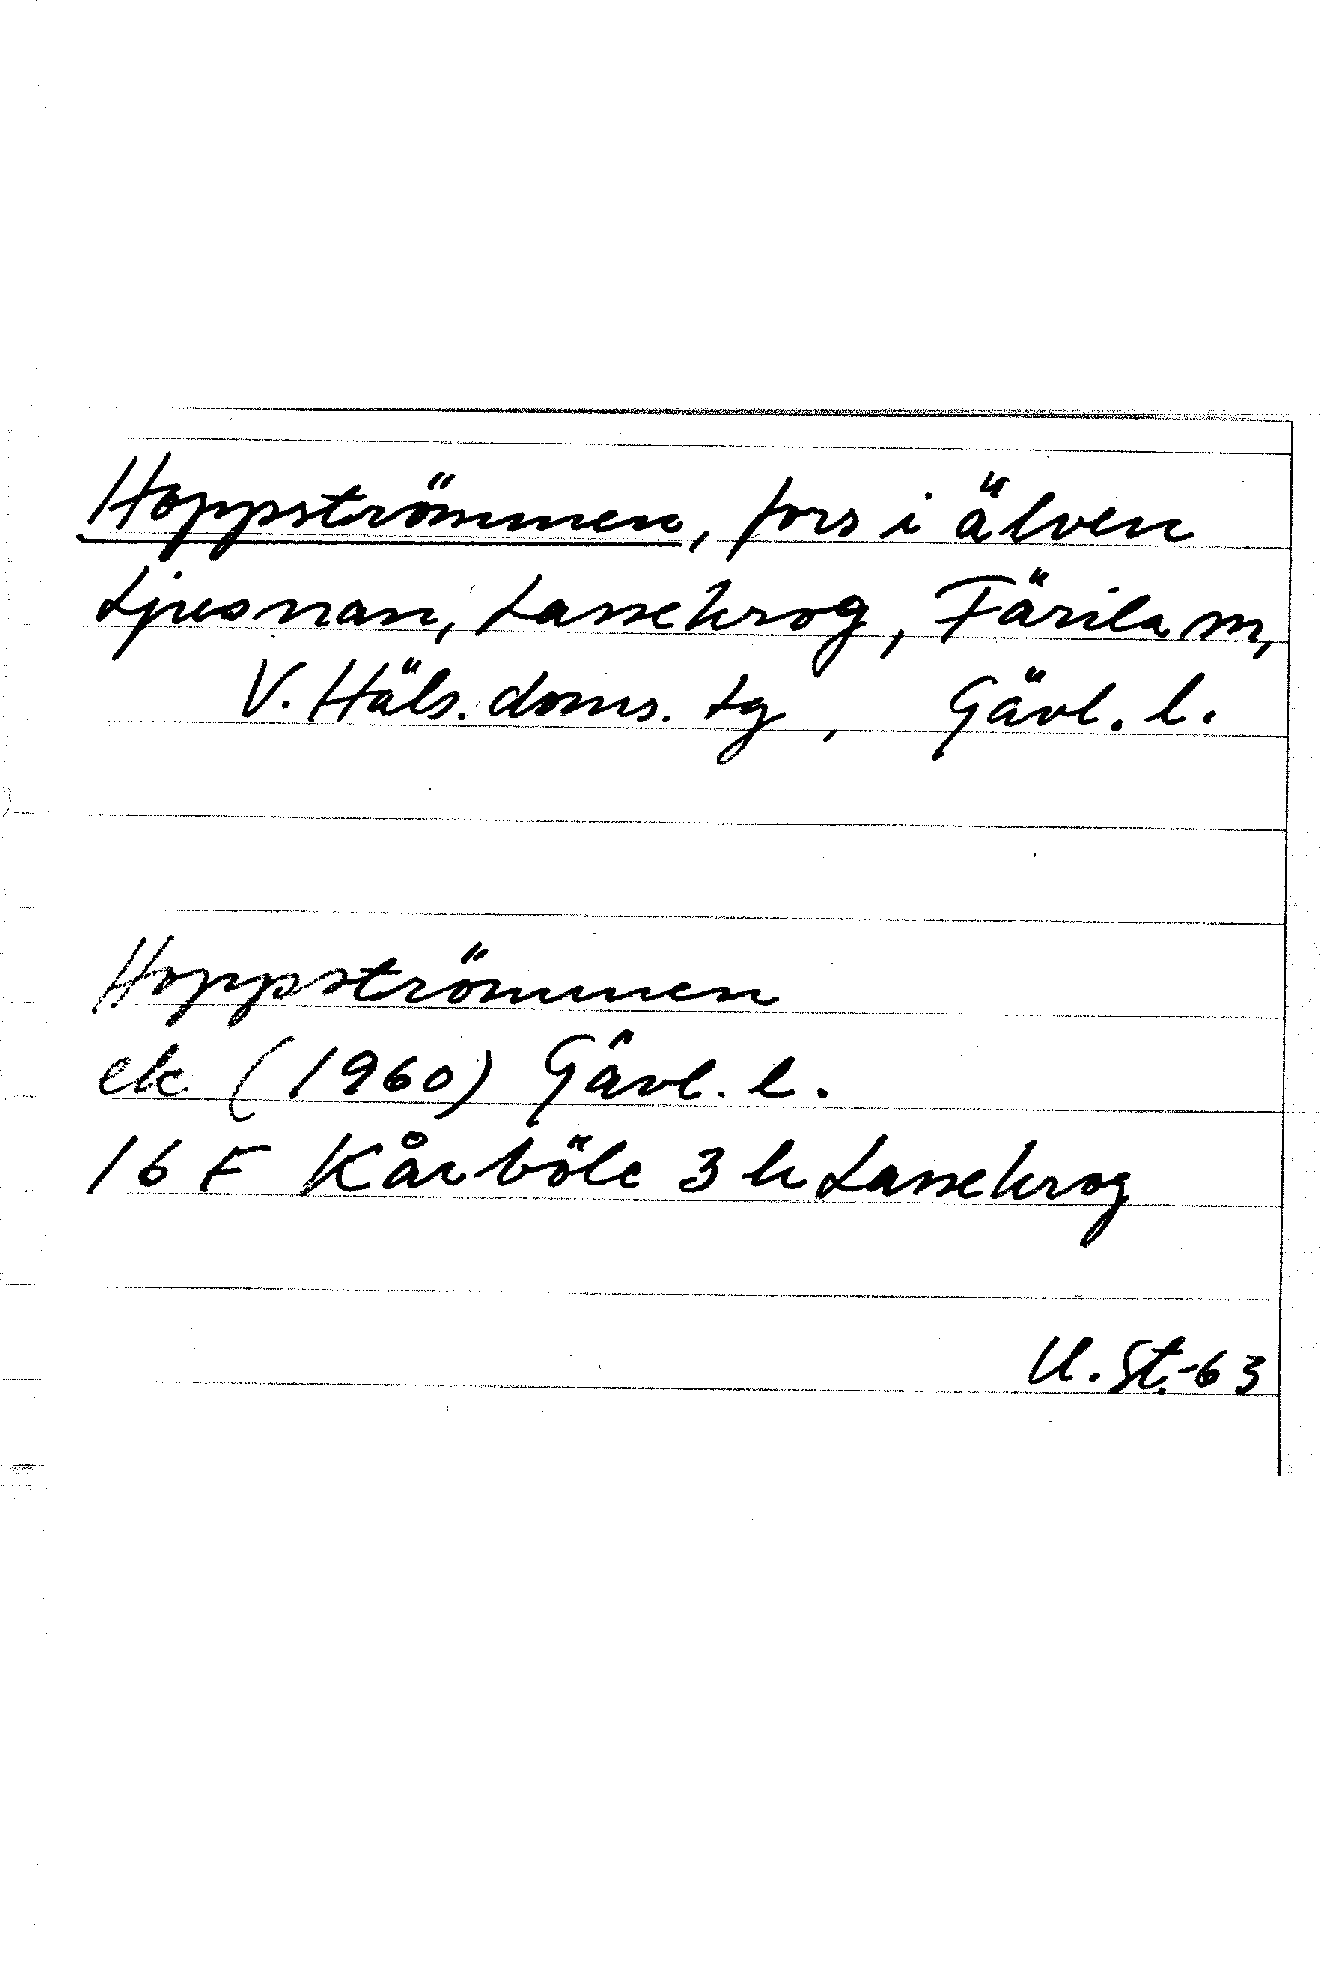 Hoppströmmen, fors i älven
Ljusnan, Lassekrog, Färila sn,
V. Häls. doms. tg, Gävl. l.
Hoppströmmen
ek (1960) Gävl. l.
16 F Kårböle 3 h Lassekrog
U. St.-63